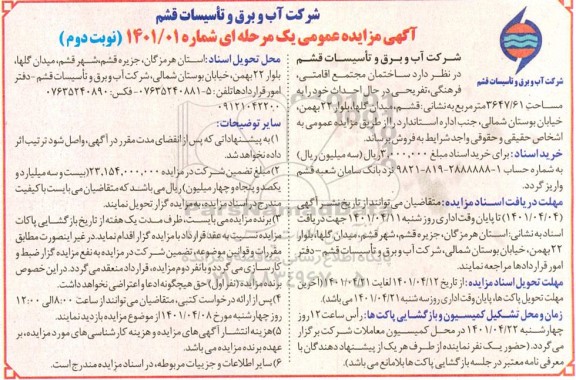 شرکت آب و برق و تأسیسات قشم
آگهی مزایده عمومی یک مرحله ای شماره ۱۴۰۱/۰۱ (نوبت دوم)
شرکت آب و برق و تأسیسات قشم
شرکت آب و برق و تأسیسات قشم
در نظر دارد ساختمان مجتمع اقامتی،
فرهنگی، تفریحی در حال احداث خود را به
مساحت ۳۶۴۷/۶۱ مترمربع به نشانی: قشم، میدان گلها، بلوار ۲۲ بهمن،
خیابان بوستان شمالی، جنب اداره استاندارد را از طریق مزایده عمومی به
اشخاص حقیقی و حقوقی واجد شرایط به فروش برساند.
خرید اسناد: برای خرید اسناد مبلغ ۳,۰۰۰,۰۰۰ ریال (سه میلیون ریال)
به شماره حساب ۱-۲۸۸۸۸۸۸-۸۱۹-۹۸۲۱ نزد بانک سامان شعبه قشم
واریز گردد.
مهلت دریافت اسناد مزایده: متقاضیان می‌توانند از تاریخ نشر آگهی
(۱۴۰۱/۰۴/۰۴) تا پایان وقت اداری روز شنبه ۱۴۰۱/۰۴/۱۱ جهت دریافت
اسناد به نشانی: استان هرمزگان، جزیره قشم، شهر قشم، میدان گلها، بلوار
۲۲ بهمن، خیابان بوستان شمالی، شرکت آب و برق و تأسیسات قشم - دفتر
امور قراردادها مراجعه نمایند.
مهلت تحویل اسناد مزایده: از تاریخ ۱۴۰۱/۰۴/۱۲ لغایت ۱۴۰۱/۰۴/۲۱ (آخرین
مهلت تحویل پاکت‌ها، پایان وقت اداری روز سه شنبه ۱۴۰۱/۰۴/۲۱ می‌باشد)
زمان و محل تشکیل کمیسیون و بازگشایی پاکت‌ها: رأس ساعت ۱۲ روز
چهارشنبه ۱۴۰۱/۰۴/۲۲ در محل کمیسیون معاملات شرکت برگزار
می‌گردد. (حضور یک نفر نماینده از طرف هر یک از پیشنهاد دهندگان با
معرفی نامه معتبر در جلسه بازگشایی پاکت ها بلامانع می‌باشد).
محل تحویل اسناد: استان هرمزگان، جزیره قشم، شهر قشم، میدان گلها،
بلوار ۲۲ بهمن، خیابان بوستان شمالی، شرکت آب و برق و تأسیسات قشم - دفتر
امور قراردادها تلفن: ۵-۰۷۶۳۵۲۴۰۸۸۱ - فکس: ۰۷۶۳۵۲۴۰۸۹۰
۰۹۱۲۱۰۴۲۲۰۰
سایر توضیحات:
۱) به پیشنهاداتی که پس از انقضای مدت مقرر در آگهی، واصل شود ترتیب اثر
داده نخواهد شد.
۲) مبلغ تضمین شرکت در مزایده ۲۳,۱۵۴,۰۰۰,۰۰۰ (بیست و سه میلیارد و
یکصد و پنجاه و چهار میلیون) ریال می‌باشد که متقاضیان می‌بایست با کیفیت
مندرج در اسناد مزایده، به مزایده گزار تحویل نمایند.
۳) برنده مزایده می بایست، ظرف مدت یک هفته از تاریخ بازگشایی پاکات
مزایده نسبت به عقد قرارداد با مزایده گزار اقدام نماید. در غیر اینصورت مطابق
مقررات و قوانین موضوعه، تضمین شرکت در مزایده به نفع مزایده گزار ضبط و
کارسازی می گردد و با نفر دوم مزایده، قرارداد منعقد می گردد. در این خصوص
برنده مزایده (نفر اول) حق هیچگونه ادعا و اعتراضی نخواهد داشت.
۴) پس از ارائه درخواست کتبی، متقاضیان می توانند از ساعت ۸:۰۰ الی ۱۲:۰۰
روز چهارشنبه مورخ ۱۴۰۱/۰۴/۰۸ از موضوع مزایده بازدید نمایند.
۵) هزینه انتشار آگهی های مزایده و هزینه کارشناسی های مورد مزایده، بر
عهده برنده مزایده می باشد.
۶) سایر اطلاعات و جزییات مربوطه، در اسناد مزایده مندرج است.